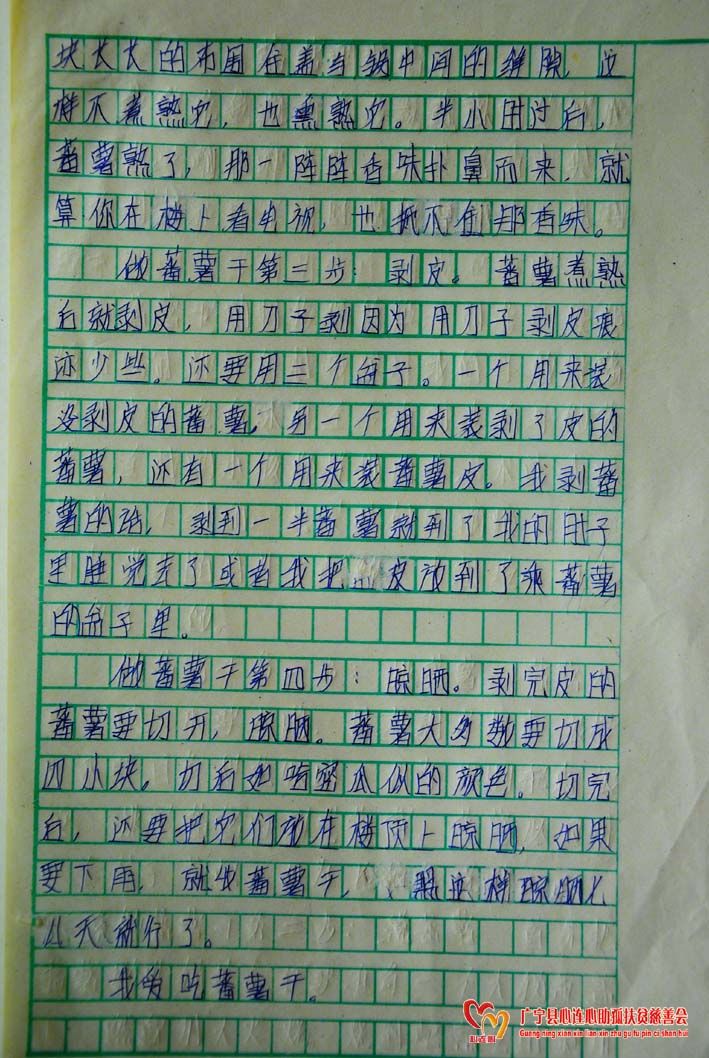 块长长的布围住盖与锅中间的缝隙,这
样不煮熟它,也熏熟它。半小时过后,
蕃薯熟了,那一阵阵香味扑鼻而来,就
算你在楼上看电视,也抵不住那香味。
做蕃薯干第三步:剥皮。蕃薯煮熟
后就剥皮,用刀子剥因为用刀子剥皮痕
迹少些。还要用三个盆子。一个用来装
没剥皮的蕃薯,另一个用来装剥了皮的
蕃薯,还有一个用来装蕃薯皮。我剥蕃
薯的话,剥到一半蕃薯就到了我的肚子
里睡觉去了或者我把皮放到了乘蕃薯
的盆子里。
做蕃薯干第四步:晾晒。剥完皮的
蕃薯要切开,晾晒。蕃薯大多数要切成
四小块。切后如哈密瓜似的颜色。切完
后,还要把它们放在楼顶上晾晒,如果
要下雨,就收蕃薯干,照这样晾晒七
八天就行了。
我爱吃蕃薯干。
广宁县心连心助孤扶贫慈善会
Guang ning xian xin lian xin zhu gu fu pin ci shan hui
心连心